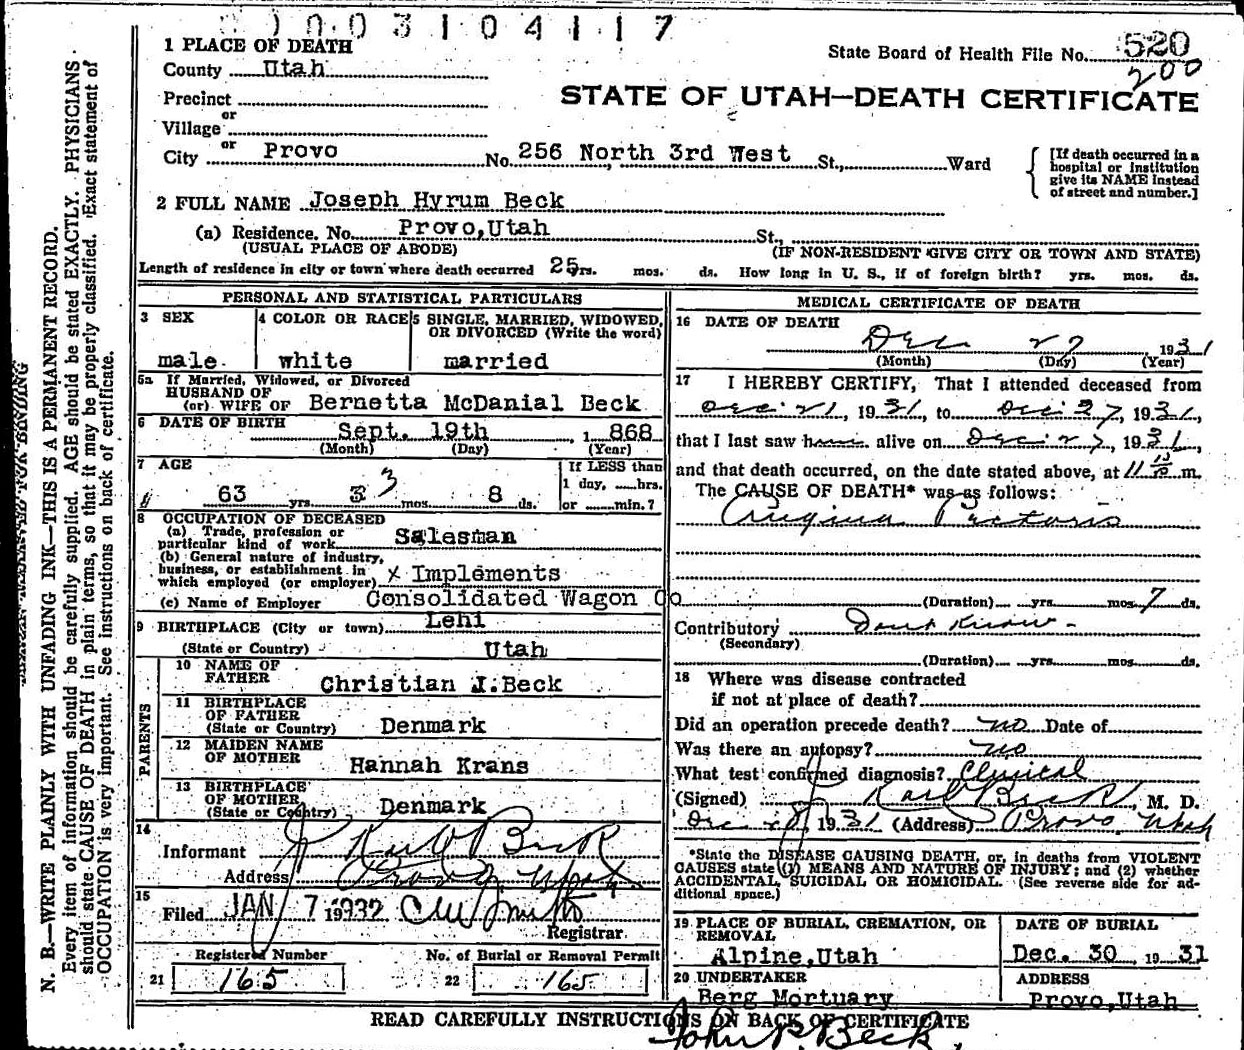 1003104117
1 PLACE OF DEATH
State Board of Health File No. 520
200
County Utah
STATE OF UTAH—DEATH CERTIFICATE
Precinct
or
Village
or
City Provo No. 256 North 3rd West St., Ward
[If death occurred in a
hospital or institution
give its NAME instead
of street and number.]
2 FULL NAME Joseph Hyrum Beck
(a) Residence. No. Provo,Utah St.,
(USUAL PLACE OF ABODE) (IF NON-RESIDENT GIVE CITY OR TOWN AND STATE)
Length of residence in city or town where death occurred 25 yrs. mos. ds. How long in U. S., if of foreign birth? yrs. mos. ds.
PERSONAL AND STATISTICAL PARTICULARS
3 SEX
male
4 COLOR OR RACE
white
5 SINGLE, MARRIED, WIDOWED,
OR DIVORCED (Write the word)
married
5a If Married, Widowed, or Divorced
HUSBAND OF
(or) WIFE OF Bernetta McDanial Beck
6 DATE OF BIRTH Sept. 19th , 1 868
(Month) (Day) (Year)
7 AGE
63 yrs. 3 3 mos. 8 ds.
If LESS than
1 day, hrs.
or min.?
8 OCCUPATION OF DECEASED
(a) Trade, profession or
particular kind of work Salesman
(b) General nature of industry,
business, or establishment in
which employed (or employer) x Implements
(c) Name of Employer Consolidated Wagon Co
9 BIRTHPLACE (City or town) Lehi
(State or Country) Utah
PARENTS
10 NAME OF
FATHER Christian J.Beck
11 BIRTHPLACE
OF FATHER
(State or Country) Denmark
12 MAIDEN NAME
OF MOTHER Hannah Krans
13 BIRTHPLACE
OF MOTHER
(State or Country) Denmark
14
Informant Karl O Beck
Address Provo Utah
15
Filed JAN 7 1932
Registrar.
Registered Number No. of Burial or Removal Permit
21 165 22 165
MEDICAL CERTIFICATE OF DEATH
16 DATE OF DEATH
Dec 27 1931
(Month) (Day) (Year)
17 I HEREBY CERTIFY, That I attended deceased from
Dec 21, 1931, to Dec 27, 1931,
that I last saw him alive on Dec 27, 1931,
and that death occurred, on the date stated above, at 11 m.
The CAUSE OF DEATH* was as follows:
Angina Pectoris
(Duration) yrs. mos. 7 ds.
Contributory Dont Know
(Secondary)
(Duration) yrs. mos. ds.
18 Where was disease contracted
if not at place of death?
Did an operation precede death? no Date of
Was there an autopsy? no
What test confirmed diagnosis? Clinical
(Signed) Karl O Beck, M. D.
Dec 28, 1931 (Address) Provo Utah
*State the DISEASE CAUSING DEATH, or, in deaths from VIOLENT
CAUSES state (1) MEANS AND NATURE OF INJURY; and (2) whether
ACCIDENTAL, SUICIDAL OR HOMICIDAL. (See reverse side for ad-
ditional space.)
19 PLACE OF BURIAL, CREMATION, OR
REMOVAL
Alpine,Utah
DATE OF BURIAL
Dec. 30 , 19 31
20 UNDERTAKER
Berg Mortuary
ADDRESS
Provo,Utah
READ CAREFULLY INSTRUCTIONS ON BACK OF CERTIFICATE
John P. Beck.
N. B.—WRITE PLAINLY WITH UNFADING INK—THIS IS A PERMANENT RECORD.
Every item of information should be carefully supplied. AGE should be stated EXACTLY. PHYSICIANS
should state CAUSE OF DEATH in plain terms, so that it may be properly classified. Exact statement of
OCCUPATION is very important. See instructions on back of certificate.